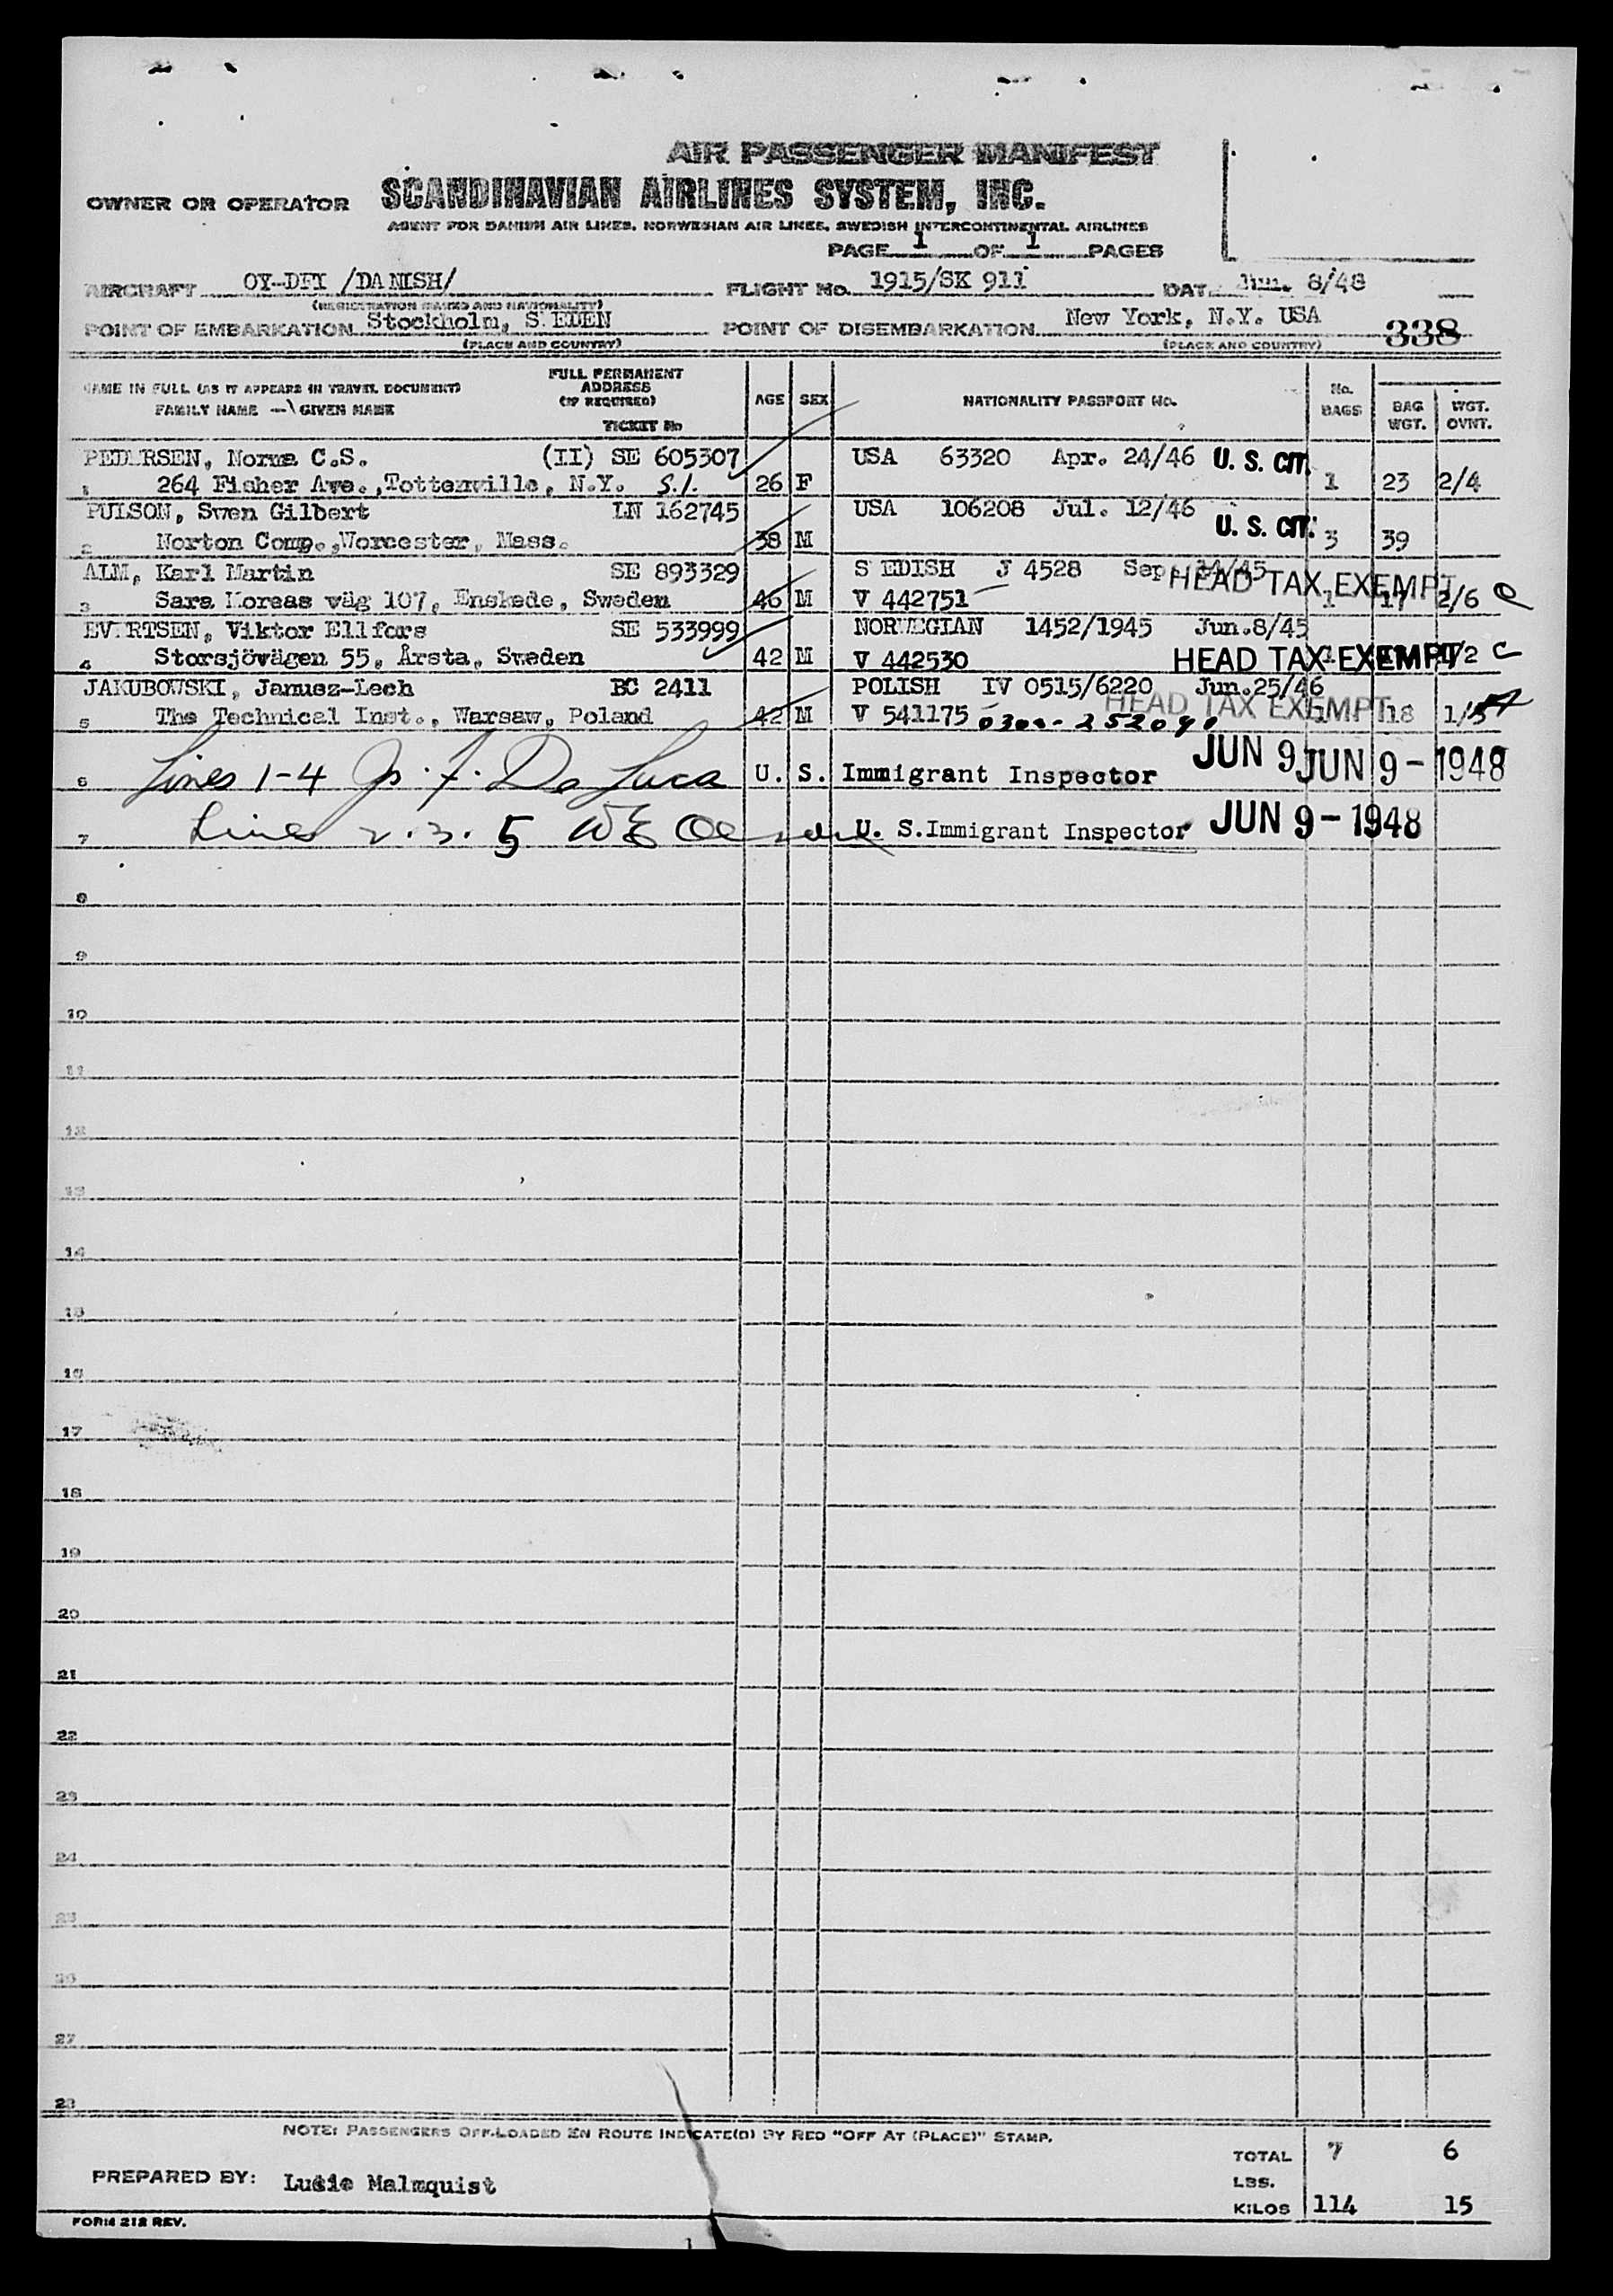 AIR PASSENGER MANIFEST
OWNER OR OPERATOR SCANDINAVIAN AIRLINES SYSTEM, INC.
AGENT FOR DANISH AIR LINES, NORWEGIAN AIR LINES, SWEDISH INTERCONTINENTAL AIRLINES
PAGE 1 OF 1 PAGES
AIRCRAFT OY-DFI /DANISH/ FLIGHT No. 1915/SK 911 DATE Jun. 8/48
(REGISTRATION MARKS AND NATIONALITY)
POINT OF EMBARKATION Stockholm, S EDEN POINT OF DISEMBARKATION New York, N.Y. USA 338
(PLACE AND COUNTRY) (PLACE AND COUNTRY)
NAME IN FULL (AS IT APPEARS IN TRAVEL DOCUMENT) FULL PERMANENT ADDRESS (IF REQUIRED) AGE SEX NATIONALITY PASSPORT No. No. BAGS BAG WGT. WGT. OVNT.
FAMILY NAME -- GIVEN NAME
TICKET No
PEDERSEN, Norma C.S. (II) SE 605307 USA 63320 Apr. 24/46 U. S. CIT.
1 264 Fisher Ave., Tottenville, N.Y. S.I. 26 F 1 23 2/4
PULSON, Swen Gilbert LN 162745 USA 106208 Jul. 12/46 U. S. CIT.
2 Norton Comp., Worcester, Mass. 38 M 3 39
ALM, Karl Martin SE 893329 S EDISH J 4528 Sep. 14/45 HEAD TAX EXEMPT
3 Sara Moreas väg 107, Enskede, Sweden 46 M V 442751 1 17 2/6
EVERTSEN, Viktor Ellfors SE 533999 NORWEGIAN 1452/1945 Jun.8/45
4 Storsjövägen 55, Årsta, Sweden 42 M V 442530 HEAD TAX EXEMPT 1
JAKUBOWSKI, Janusz-Lech BC 2411 POLISH IV 0515/6220 Jun.25/46
5 The Technical Inst., Warsaw, Poland 42 M V 541175 0300-252090 HEAD TAX EXEMPT 1 18
6 Lines 1-4 De Luca U. S. Immigrant Inspector JUN 9 JUN 9 - 1948
7 Lines 2.3. 5 U. S. Immigrant Inspector JUN 9 - 1948
8
9
10
11
12
13
14
15
16
17
18
19
20
21
22
23
24
25
26
27
28
NOTE: PASSENGERS OFF-LOADED EN ROUTE INDICATE(D) BY RED "OFF AT (PLACE)" STAMP.
TOTAL 7 6
PREPARED BY: Lucie Malmquist
LBS.
KILOS 114 15
FORM 212 REV.